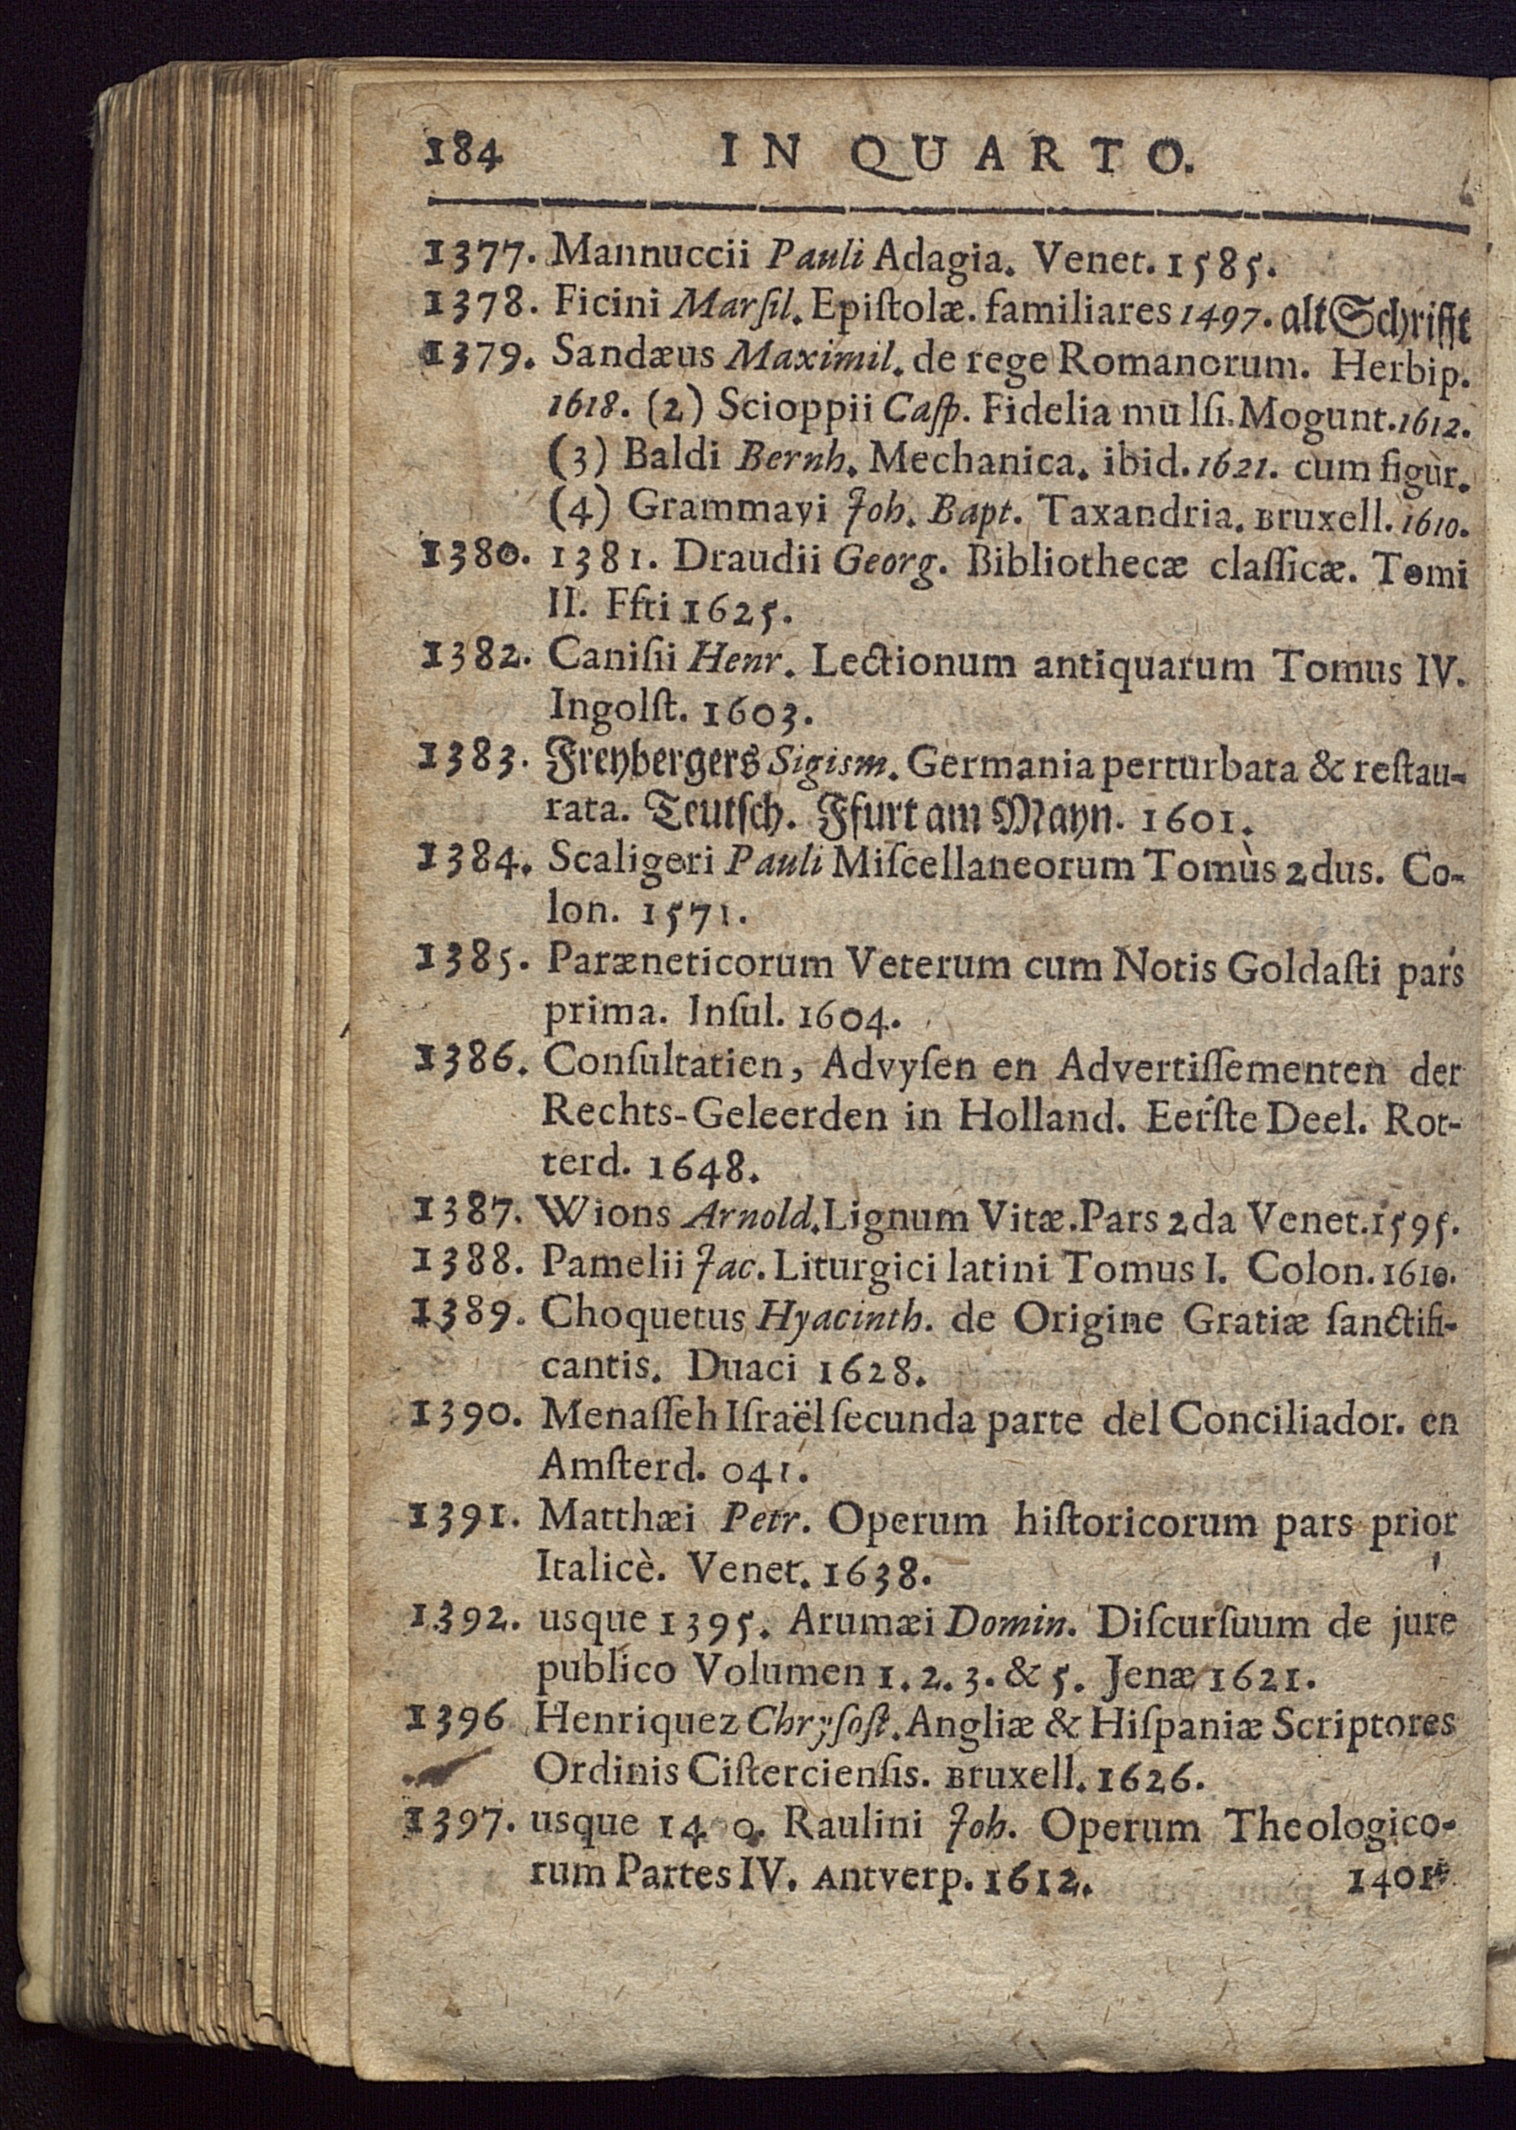 184 IN QUARTO.
1377. Mannuccii Pauli Adagia. Venet. 1585.
1378. Ficini Marſil. Epiſtolæ. familiares 1497. alt Schrifft
1379. Sandæus Maximil. de rege Romanorum. Herbip.
1618. (2) Scioppii Caſp. Fidelia mulſi. Mogunt. 1612.
(3) Baldi Bernh. Mechanica. ibid. 1621. cum figur.
(4) Grammayi Joh. Bapt. Taxandria. Bruxell. 1610.
1380. 1381. Draudii Georg. Bibliothecæ claſſicæ. Tomi
II. Ffti 1625.
1382. Caniſii Henr. Lectionum antiquarum Tomus IV.
Ingolſt. 1603.
1383. Freybergers Sigism. Germania perturbata & reſtau-
rata. Teutſch. Ffurt am Mayn. 1601.
1384. Scaligeri Pauli Miſcellaneorum Tomùs 2dus. Co-
lon. 1571.
1385. Paræneticorum Veterum cum Notis Goldaſti pars
prima. Inſul. 1604.
1386. Conſultatien, Advyſen en Advertiſſementen der
Rechts-Geleerden in Holland. Eerſte Deel. Rot-
terd. 1648.
1387. Wions Arnold. Lignum Vitæ. Pars 2da Venet. 1595.
1388. Pamelii Jac. Liturgici latini Tomus I. Colon. 1610.
1389. Choquetus Hyacinth. de Origine Gratiæ ſanctifi-
cantis. Duaci 1628.
1390. Menaſſeh Iſraël ſecunda parte del Conciliador. en
Amſterd. 041.
1391. Matthæi Petr. Operum hiſtoricorum pars prior
Italicè. Venet. 1638.
1392. usque 1395. Arumæi Domin. Diſcurſuum de jure
publico Volumen 1. 2. 3. & 5. Jenæ 1621.
1396 Henriquez Chryſoſt. Angliæ & Hiſpaniæ Scriptores
Ordinis Ciſtercienſis. Bruxell. 1626.
1397. usque 14 0. Raulini Joh. Operum Theologico-
rum Partes IV. Antverp. 1612. 1401.